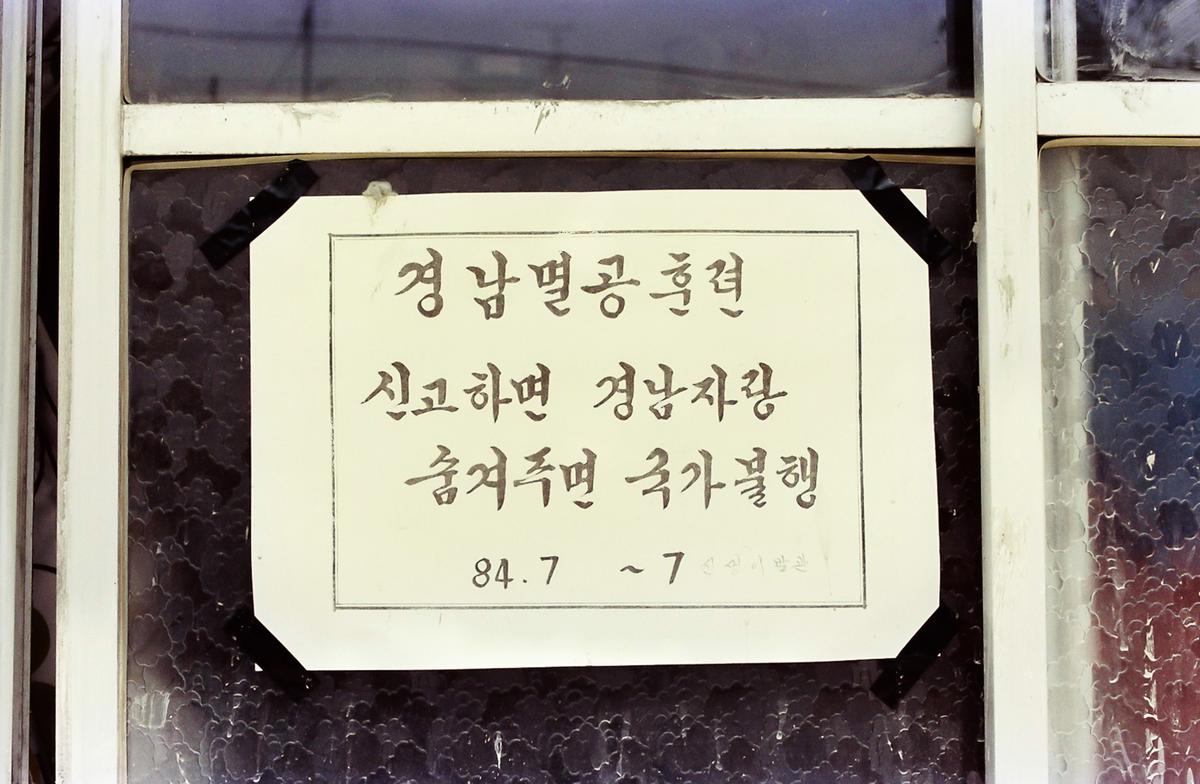 경남멸공훈련
신고하면 경남자랑
숨겨주면 국가불행
84.7 ~7